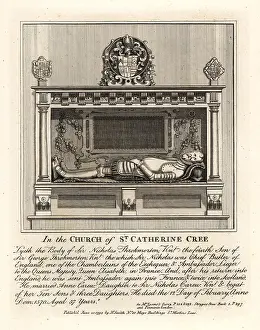 In the CHURCH of St. CATHERINE CREE
Lyeth the Body of Sir Nicholas Throkmorton Knt. the fourth Son of
Sir George Throkmorton Knt. the which Sir Nicholas was Chief Butler of
England, one of the Chamberlains of the Exchequer & Ambassador Leiger
to the Queens Majesty Queen Elizabeth in France. And after his return into
England, he was sent Ambassador again into France & twice into Scotland.
He married Anne Carew Daughter to Sir Nicholas Carew Knt & begat
of her Ten Sons & three Daughters. He died the 12 Day of February Anno
Dom. 1570. Aged 57 Years.